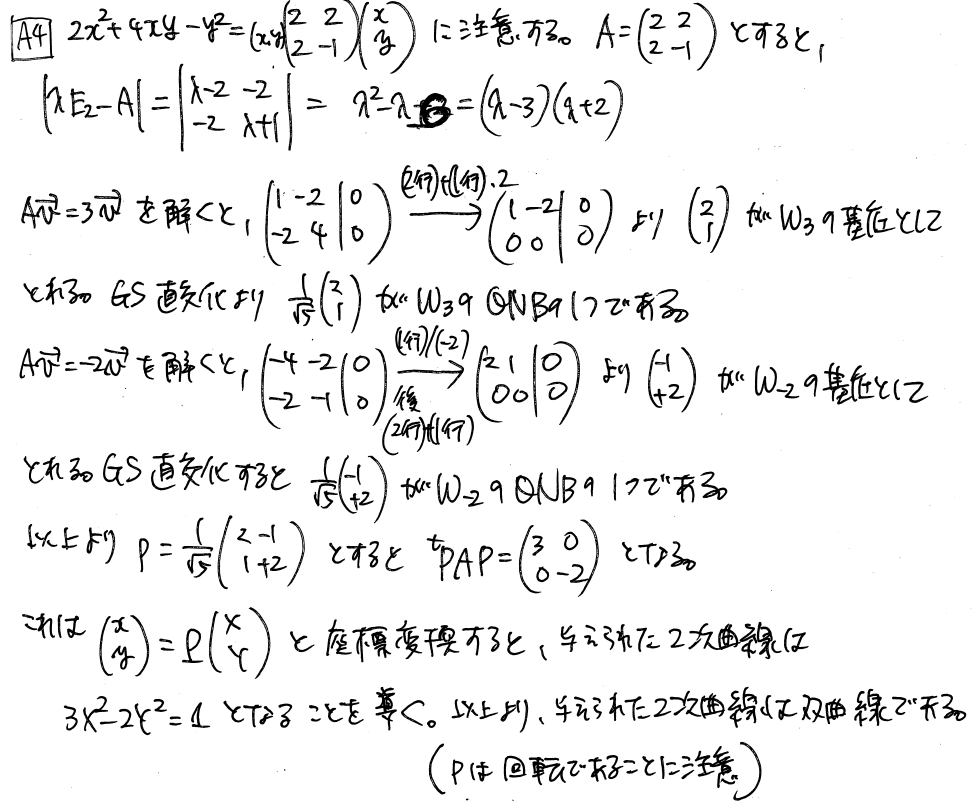 A4 2x²+4xy-y²=(x y)(2 2 / 2 -1)(x / y) に注意する。 A=(2 2 / 2 -1) とすると,
|λE₂-A|=|λ-2 -2 / -2 λ+1| = λ²-λ-6=(λ-3)(λ+2)
Av⃗=3v⃗ を解くと, (1 -2 | 0 / -2 4 | 0) (2行)+(1行)・2 → (1 -2 | 0 / 0 0 | 0) より (2 / 1) が W₃の基底として
とれる。 GS直交化より 1/√5 (2 / 1) が W₃の ONBの1つである。
Av⃗=-2v⃗ を解くと, (-4 -2 | 0 / -2 -1 | 0) (1行)/(-2) 後 (2行)+(1行) → (2 1 | 0 / 0 0 | 0) より (-1 / +2) が W₋₂の基底として
とれる。 GS直交化すると 1/√5 (-1 / +2) が W₋₂の ONBの1つである。
以上より P=1/√5 (2 -1 / 1 +2) とすると ᵗPAP=(3 0 / 0 -2) となる。
これは (x / y)=P(X / Y) と座標変換すると、与えられた2次曲線は
3X²-2Y²=1 となることを導く。以上より、与えられた2次曲線は双曲線である。
(Pは回転であることに注意)